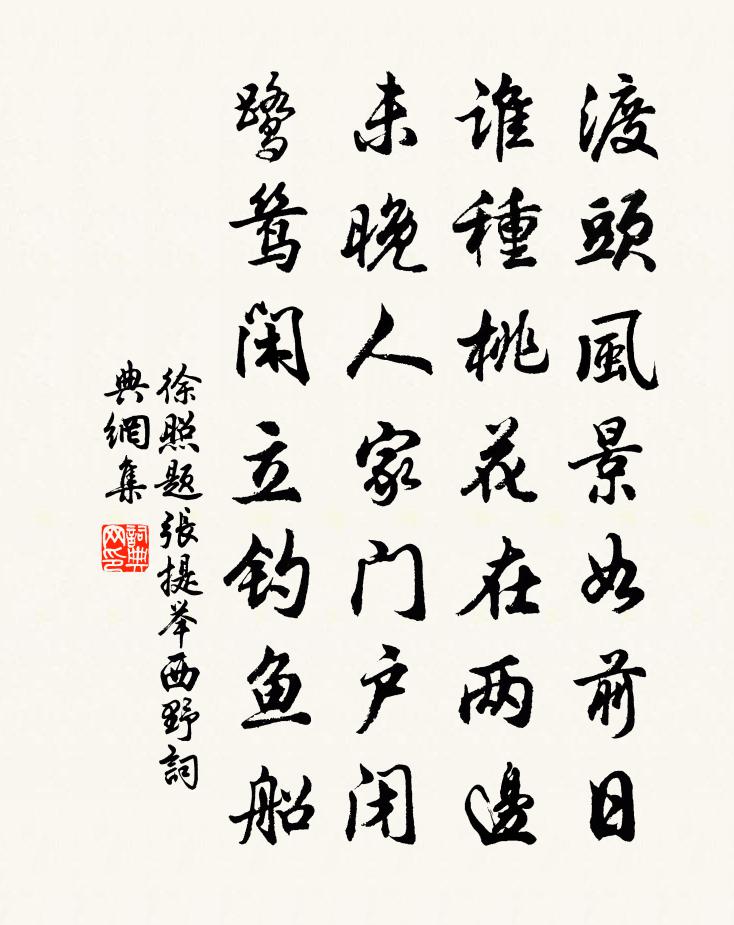 渡頭風景如前日
誰種桃花在两邊
未晚人家门户闭
鹭鸶闲立钓鱼船
徐照题張提举西野詞
典網集
詞典网印